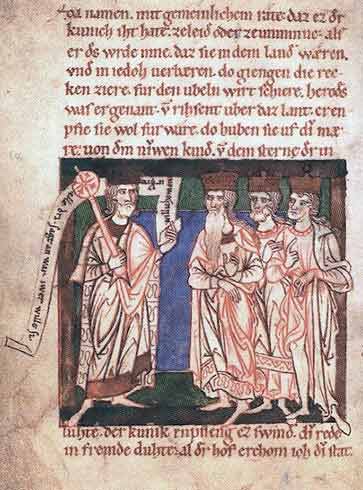 ga namen. mit gemeinlichem rate: daz ez dͤr
kunich iht hate: ze leid oder ze unminne: als
er dͤs wrde inne. daz sie in dem land wæren.
vnd in iedoh verbæren. do giengen die rec
ken ziere. fur den ubeln wirt schiere. herodͤs
was er genant. v̄ rihsent uber daz lant. er en
pfie sie wol fur ware. do huben sie uf di mæ
re: von dͤm niwen kind. v̄ dem sterne dͤr in
sagͤt an war iwer wille si
willechomen
luhte. der kunik enpfieng ez swind. di rede
in fremde duhte: al dͤr hof erchom ioh di stat.